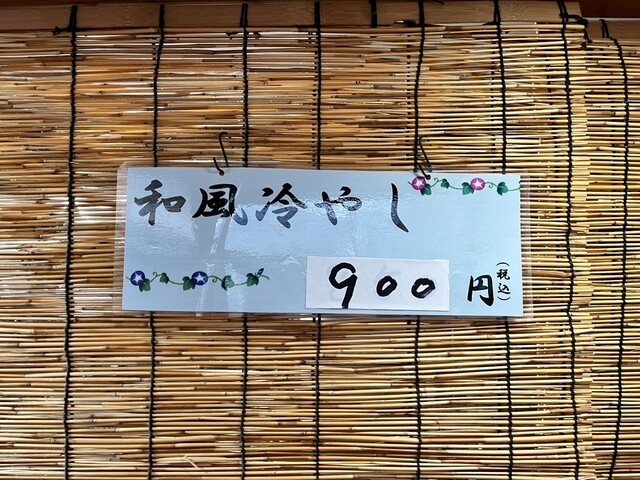 和風冷やし
900円(税込)